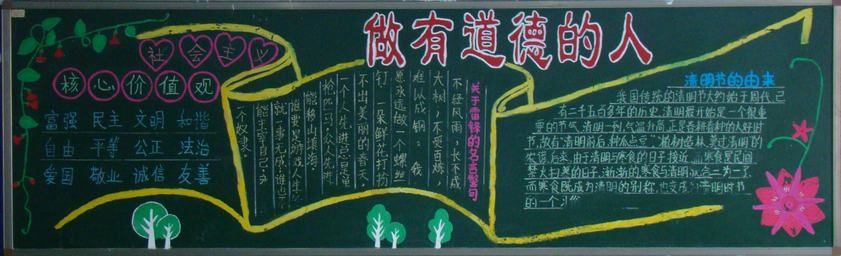 做有道德的人
社会主义
核心价值观
富强 民主 文明 和谐
自由 平等 公正 法治
爱国 敬业 诚信 友善
关于雷锋的名言警句
不经风雨，长不成
大树，不受百炼，
难以成钢。我
愿永远做一个螺丝
钉 一朵鲜花打扮
不出美丽的春天，
一个人先进总是单
枪匹马，众人先进
能移山填海。
谁要是游戏人生
就一事无成，谁
能主宰自己，
一个奴隶。
清明节的由来
我国传统的清明节大约始于周代，已
有二千五百多年的历史，清明最开始是一个很重
要的节气，清明一到，气温升高，正是春耕春种的大好时
节，故有“清明前后，种瓜点豆”“植树造林，莫过清明”的
农谚。后来，由于清明与寒食的日子接近，而寒食是民间
禁火扫墓的日子，渐渐的，寒食与清明就合二为一了，
而寒食既成为清明的别称，也变成为清明时节
的一个习俗